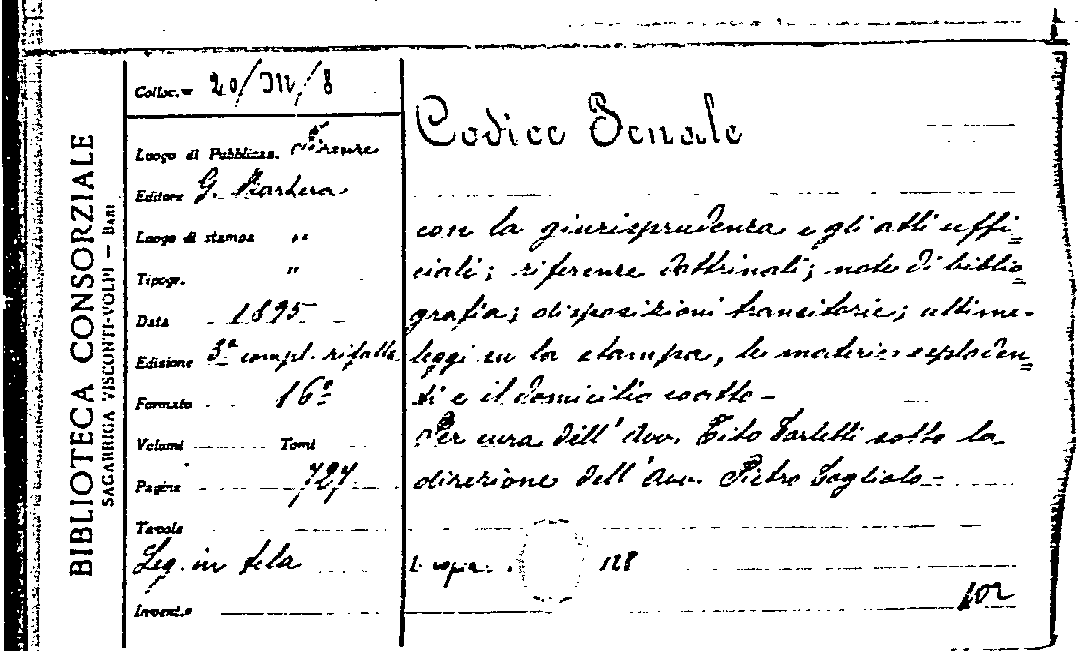 BIBLIOTECA CONSORZIALE
SAGARRIGA VISCONTI-VOLPI — BARI
Colloc.ne 20/III/8
Luogo di Pubblicaz. Firenze
Editore G. Barbera
Luogo di stampa "
Tipogr. "
Data 1895
Edizione 3ª compl. rifatta
Formato 16º
Volumi Tomi
Pagine 727
Tavole
Leg. in tela
Invent.o
Codice Penale
con la giurisprudenza e gli atti uffi=
ciali; riferenze dottrinali; note di biblio=
grafia; disposizioni transitorie; ultime
leggi su la stampa, le materie esploden=
ti e il domicilio coatto -
Per cura dell' Avv. Tito
sotto la
direzione dell' Avv. Pietro
copia 128
102